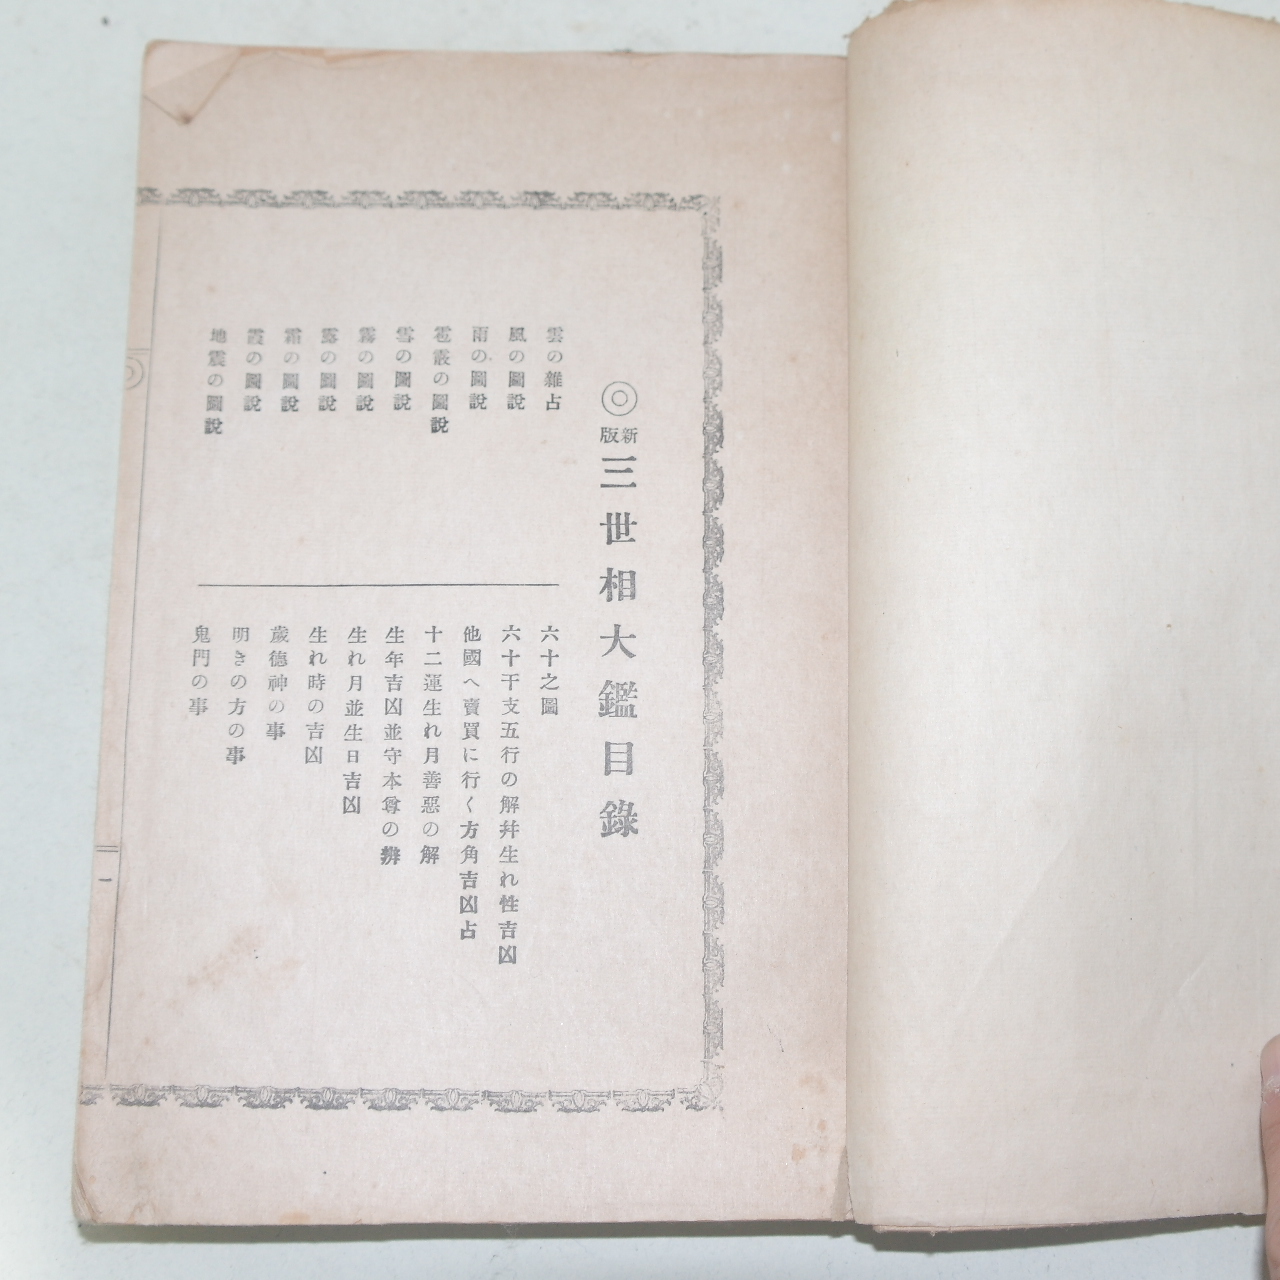 ◎新版三世相大鑑目錄
雲の雜占
風の圖說
雨の圖說
雹霰の圖說
雪の圖說
霧の圖說
露の圖說
霜の圖說
霞の圖說
地震の圖說
六十之圖
六十干支五行の解幷生れ性吉凶
他國へ賣買に行く方角吉凶占
十二運生れ月善惡の解
生年吉凶並守本尊の辨
生れ月並生日吉凶
生れ時の吉凶
歲德神の事
明きの方の事
鬼門の事
◎
一